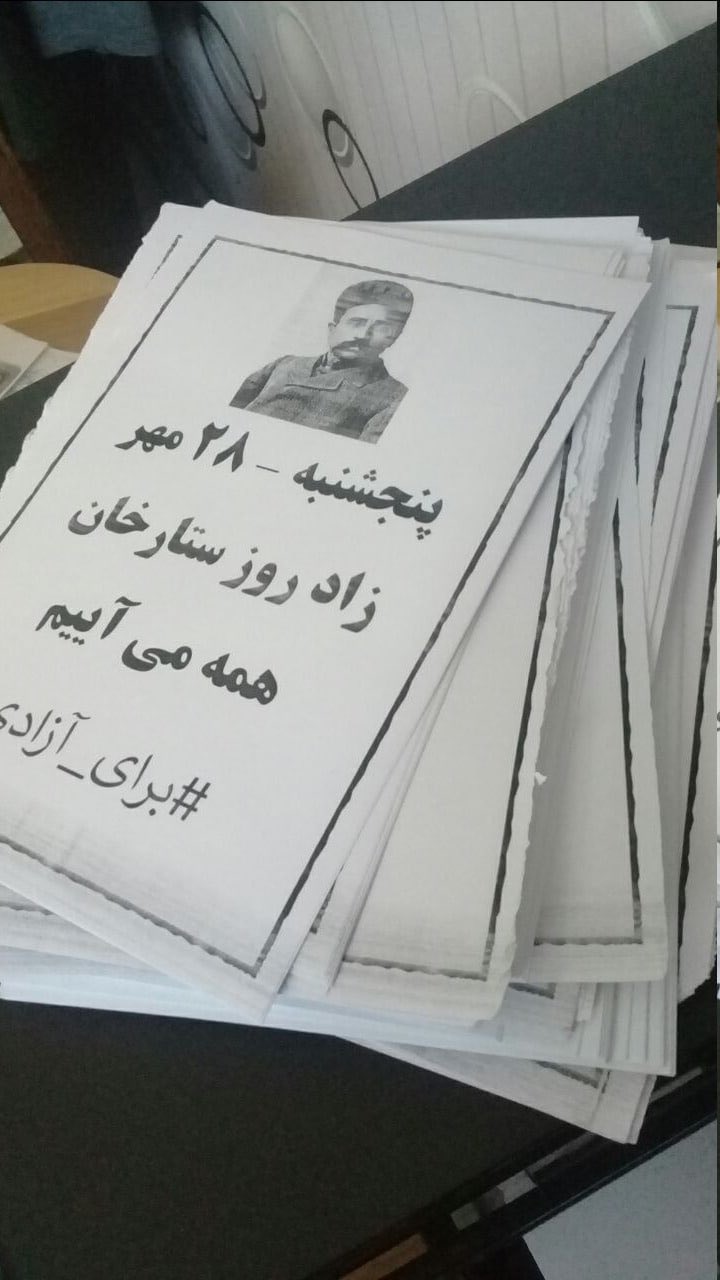 پنجشنبه - ۲۸ مهر
زاد روز ستارخان
همه می آییم
#برای_آزادی